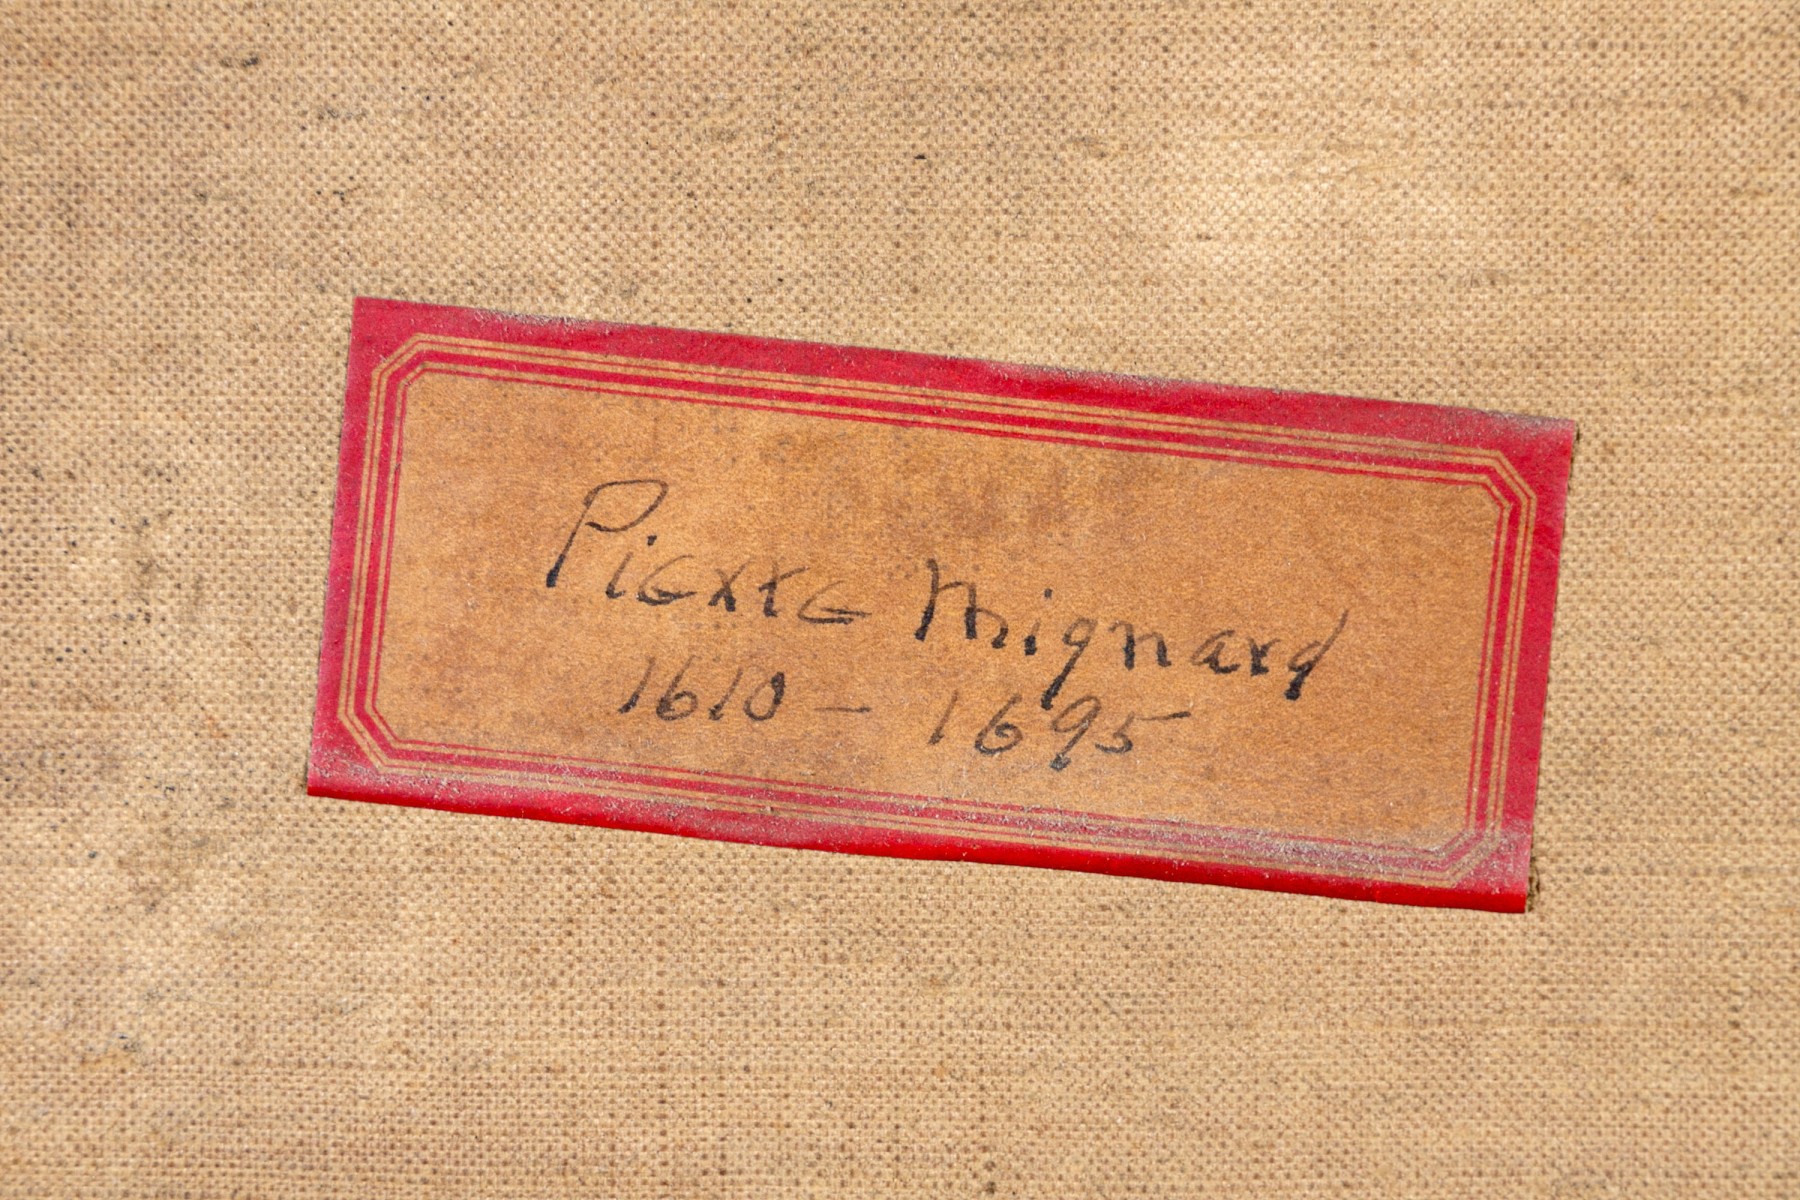 Pierre Mignard
1610 - 1695